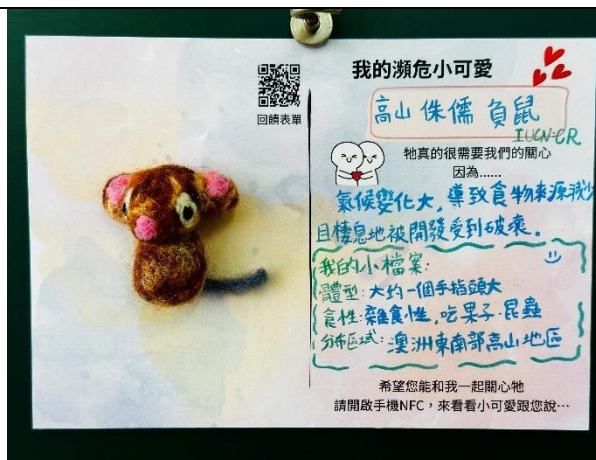 回饋表單
我的瀕危小可愛
高山侏儒負鼠
IUCN:CR
牠真的很需要我們的關心
因為......
氣候變化大,導致食物來源減少
且棲息地被開發受到破壞。
我的小檔案:
體型:大約一個手指頭大
食性:雜食性,吃果子、昆蟲
分布區域:澳洲東南部高山地區
希望您能和我一起關心牠
請開啟手機NFC,來看看小可愛跟您說…